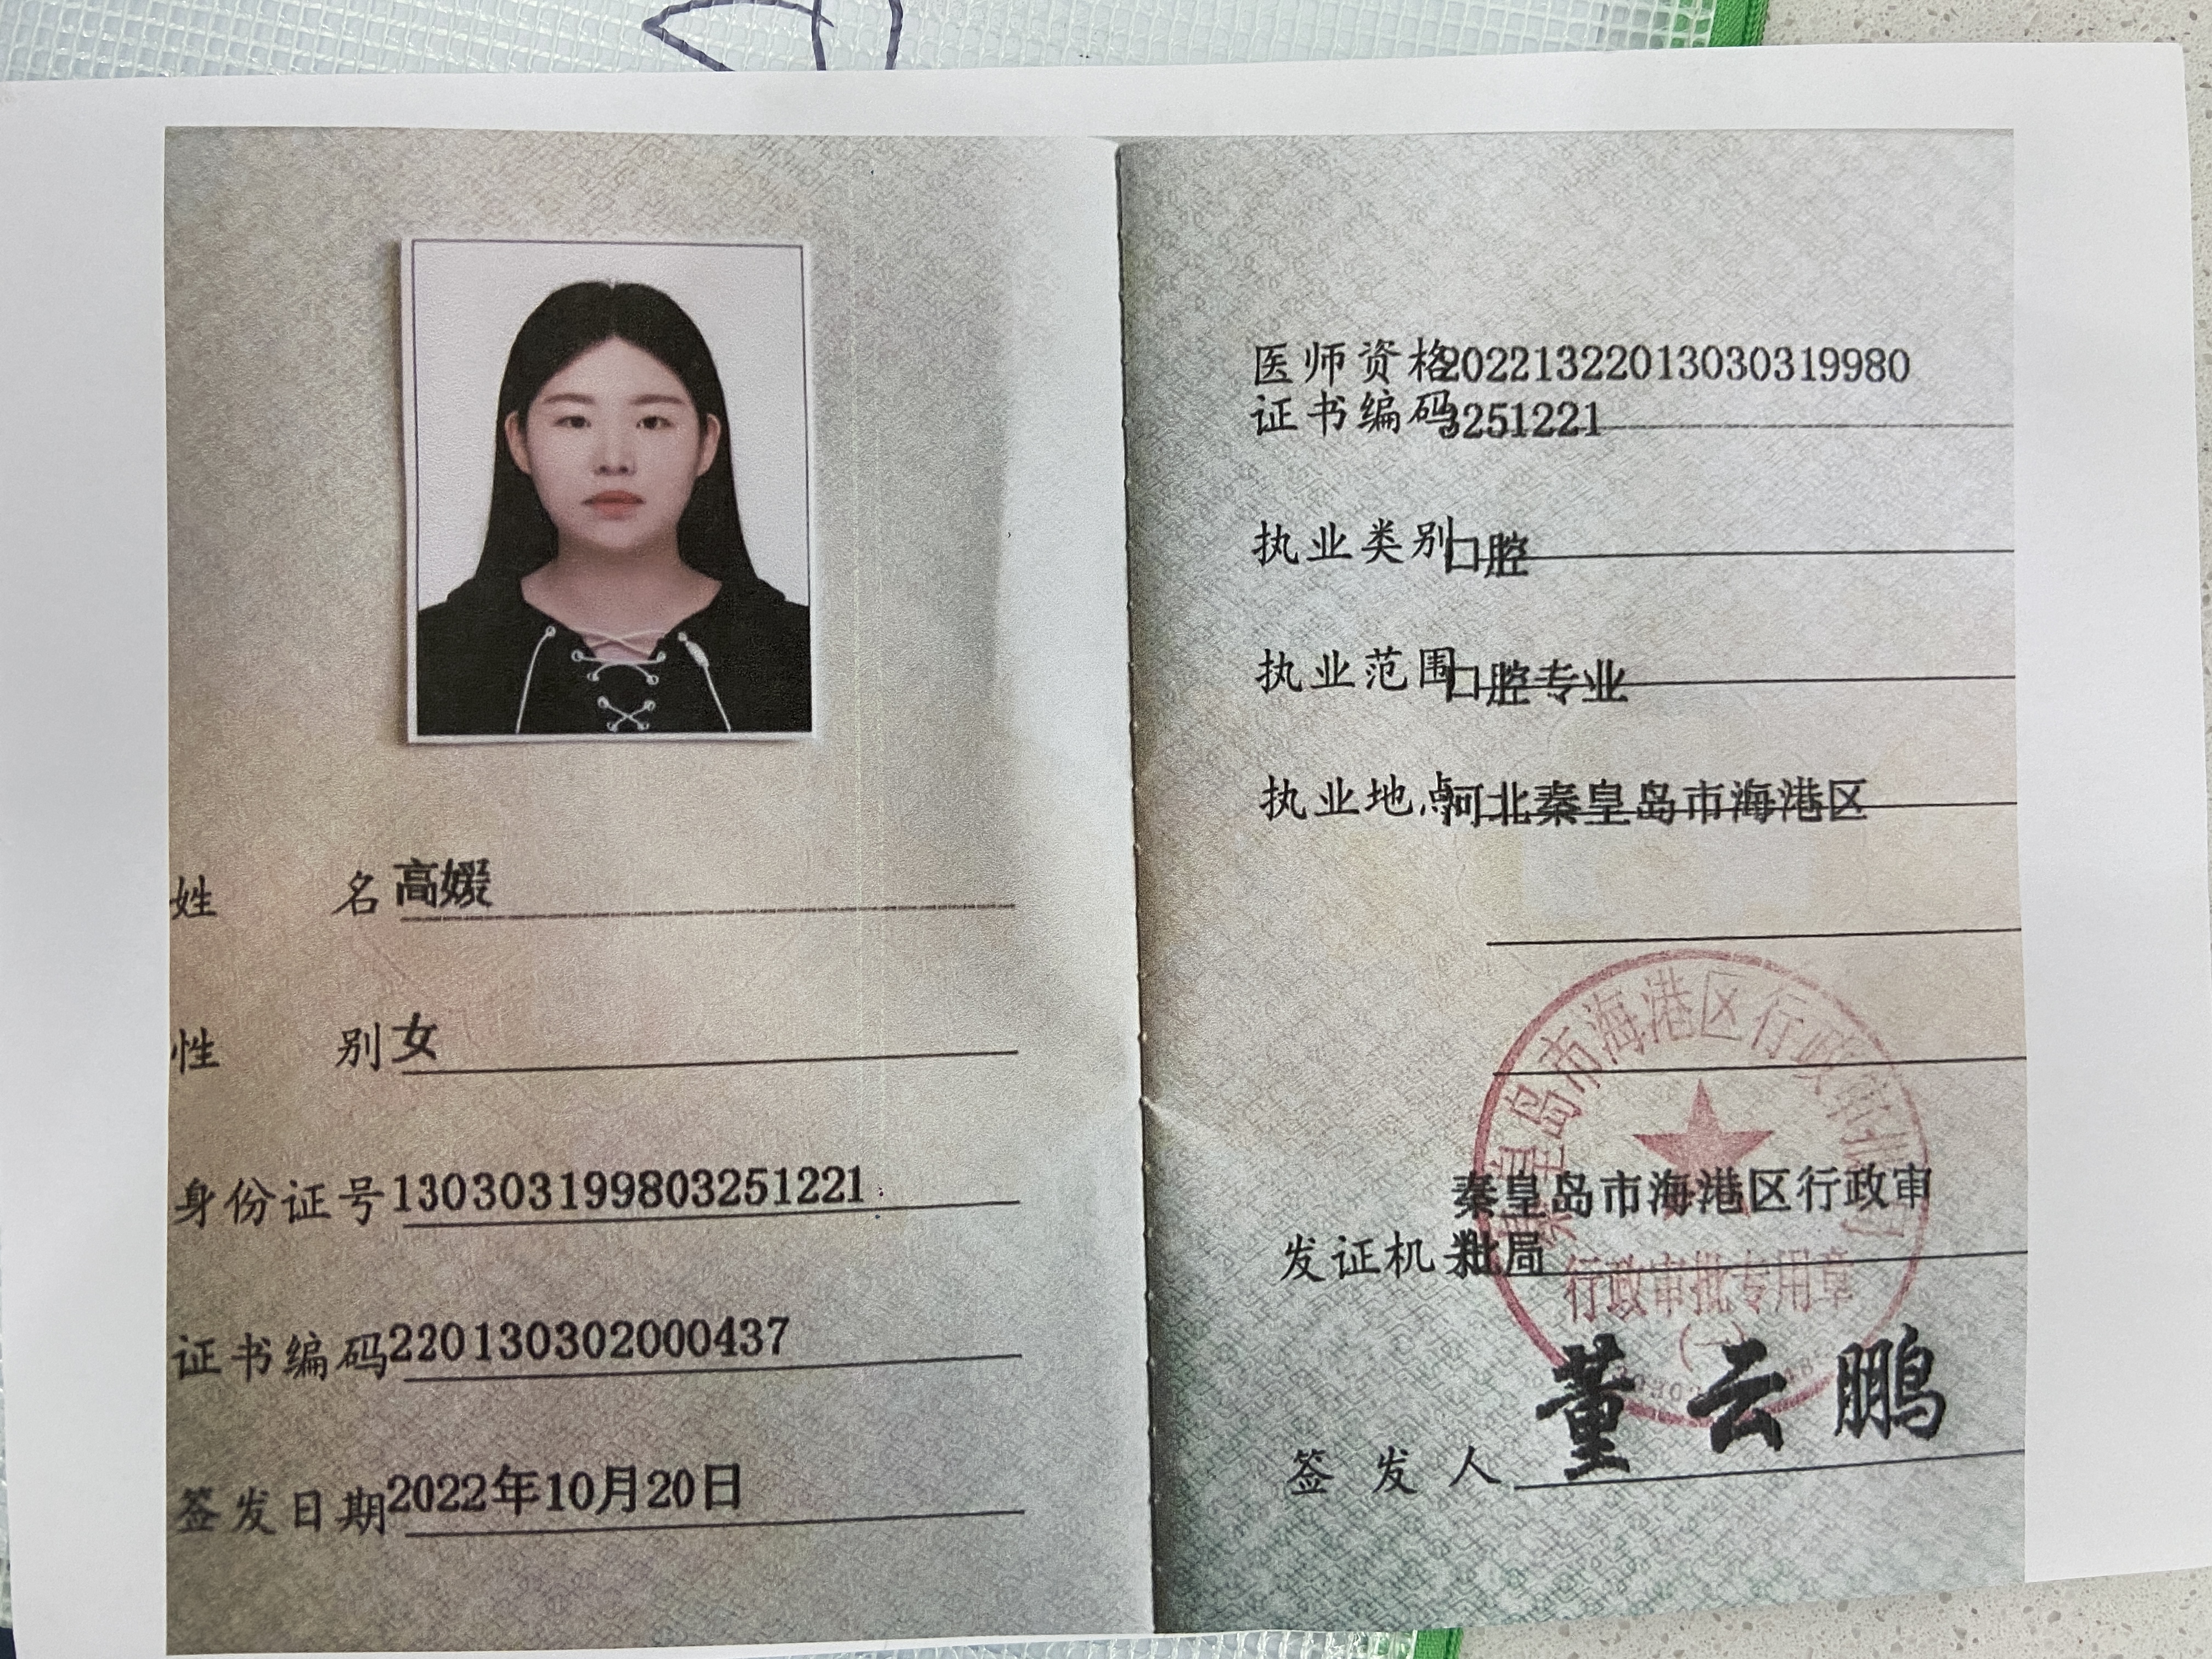 姓 名 高媛
性 别 女
身份证号 130303199803251221
证书编码 220130302000437
签发日期 2022年10月20日
医师资格 20221322013030319980
证书编码 3251221
执业类别 口腔
执业范围 口腔专业
执业地点 河北秦皇岛市海港区
秦皇岛市海港区行政审
发证机关 批局
秦皇岛市海港区行政审批局
行政审批专用章
(一)
签发人 董云鹏